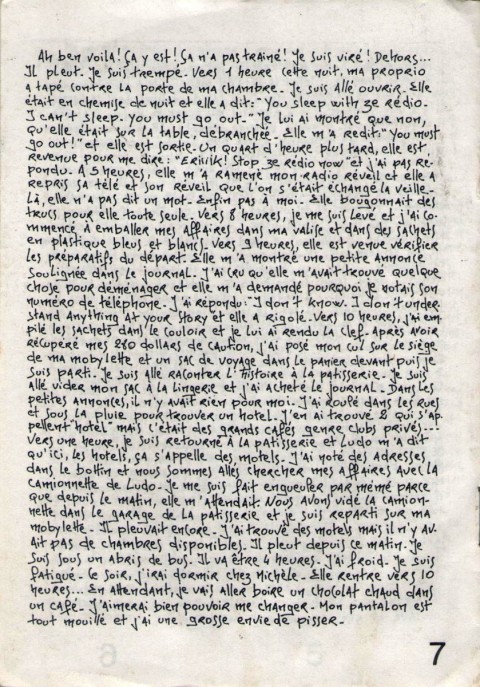 Ah ben voilà! Ça y est! Ça n'a pas trainé! Je suis viré! Dehors...
Il pleut. Je suis trempé. Vers 1 heure cette nuit, ma proprio
a tapé contre la porte de ma chambre. Je suis allé ouvrir. Elle
était en chemise de nuit et elle a dit: "You sleep with ze rédio.
I can't sleep. You must go out." Je lui ai montré que non,
qu'elle était sur la table, débranchée. Elle m'a redit: "You must
go out!" et elle est sortie. Un quart d'heure plus tard, elle est
revenue pour me dire: "Eriiik! Stop ze rédio now" et j'ai pas ré-
pondu. A 5 heures, elle m'a ramené mon radio réveil et elle a
repris sa télé et son réveil que l'on s'était échangé la veille.
Là, elle n'a pas dit un mot. Enfin pas à moi. Elle bougonnait des
trucs pour elle toute seule. Vers 8 heures, je me suis levé et j'ai co-
mmencé à emballer mes affaires dans ma valise et dans des sachets
en plastique bleus et blancs. Vers 9 heures, elle est venue vérifier
les préparatifs du départ. Elle m'a montré une petite annonce
soulignée dans le journal. J'ai cru qu'elle m'avait trouvé quelque
chose pour déménager et elle m'a demandé pourquoi je notais son
numéro de téléphone. J'ai répondu: I don't know. I don't under-
stand anything at your story et elle a rigolé. Vers 10 heures, j'ai em-
pilé les sachets dans le couloir et je lui ai rendu la clef. Après avoir
récupéré mes 240 dollars de caution, j'ai posé mon cul sur le siège
de ma mobylette et un sac de voyage dans le panier devant puis je
suis parti. Je suis allé raconter l'histoire à la patisserie. Je suis
allé vider mon sac à la lingerie et j'ai acheté le journal. Dans les
petites annonces, il n'y avait rien pour moi. J'ai roulé dans les rues
et sous la pluie pour trouver un hotel. J'en ai trouvé 2 qui s'ap-
pellent "hotel" mais c'était des grands cafés genre clubs privés...
Vers une heure, je suis retourné à la patisserie et Ludo m'a dit
qu'ici, les hotels, ça s'appelle des motels. J'ai noté des adresses
dans le bottin et nous sommes allés chercher mes affaires avec la
camionnette de Ludo. Je me suis fait engueuler par mémé parce
que depuis le matin, elle m'attendait. Nous avons vidé la camion-
nette dans le garage de la patisserie et je suis reparti sur ma
mobylette. Il pleuvait encore. J'ai trouvé des motels mais il n'y av-
ait pas de chambres disponibles. Il pleut depuis ce matin. Je
suis sous un abris de bus. Il va être 4 heures. J'ai froid. Je suis
fatigué. Ce soir, j'irai dormir chez Michèle. Elle rentre vers 10
heures... En attendant, je vais aller boire un chocolat chaud dans
un café. J'aimerai bien pouvoir me changer. Mon pantalon est
tout mouillé et j'ai une grosse envie de pisser.
7